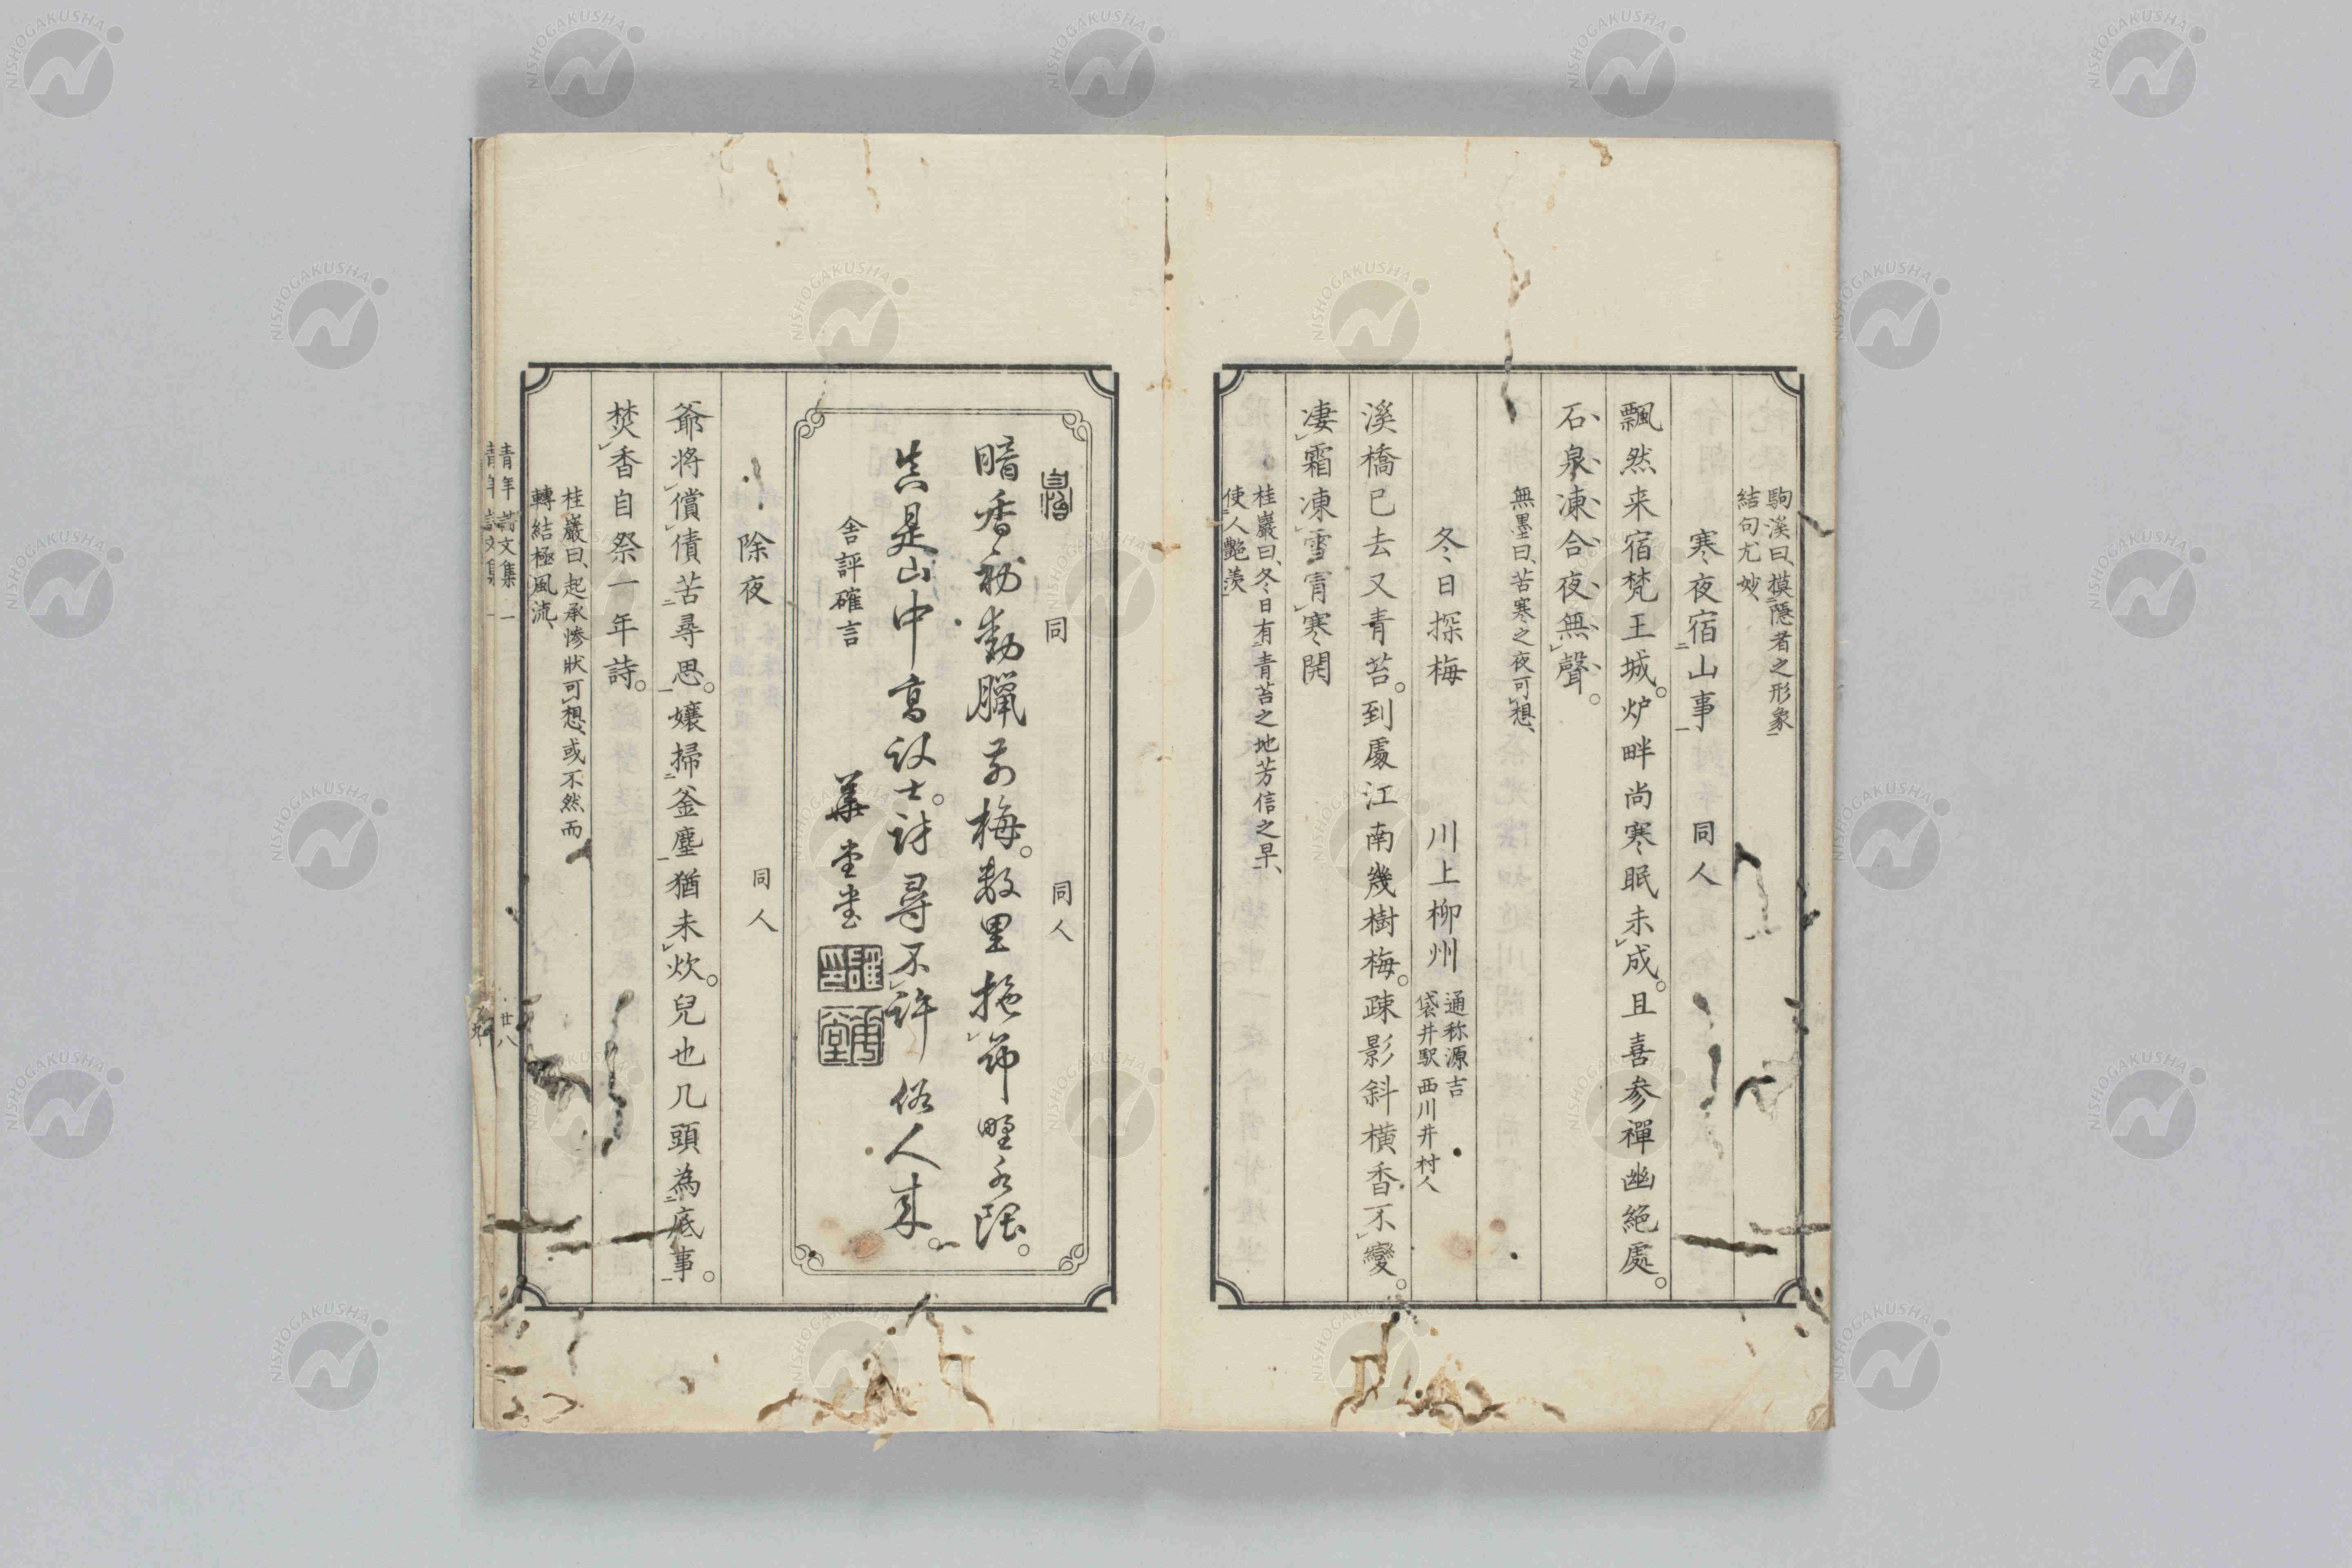 駒溪曰、摸隱者之形象
結句尤妙、
寒夜宿山事 同人
飄然来宿梵王城。炉畔尚寒眠未成。且喜参禪幽絶處。
石泉凍合夜無聲。
無墨曰、苦寒之夜可想、
冬日探梅 川上柳州 通称源吉
袋井駅西川井村人
溪橋已去又青苔。到處江南幾樹梅。疎影斜横香不變。
凄霜凍雪寳寒開
桂巖曰、冬日有青苔之地芳信之早、
使人艶羨
同 同人
暗香初動臘前梅。数里拖筇野水隈。
真是山中高議士。詩尋不許俗人来。
舎評確言
華堂書
除夜 同人
爺将償債苦尋思。孃掃釜塵猶未炊。兒也几頭為底事。
焚香自祭一年詩。
桂巖曰、起承慘状可想、或不然、而
轉結極風流、
青年詩文集 一 廿八
NISHOGAKUSHA